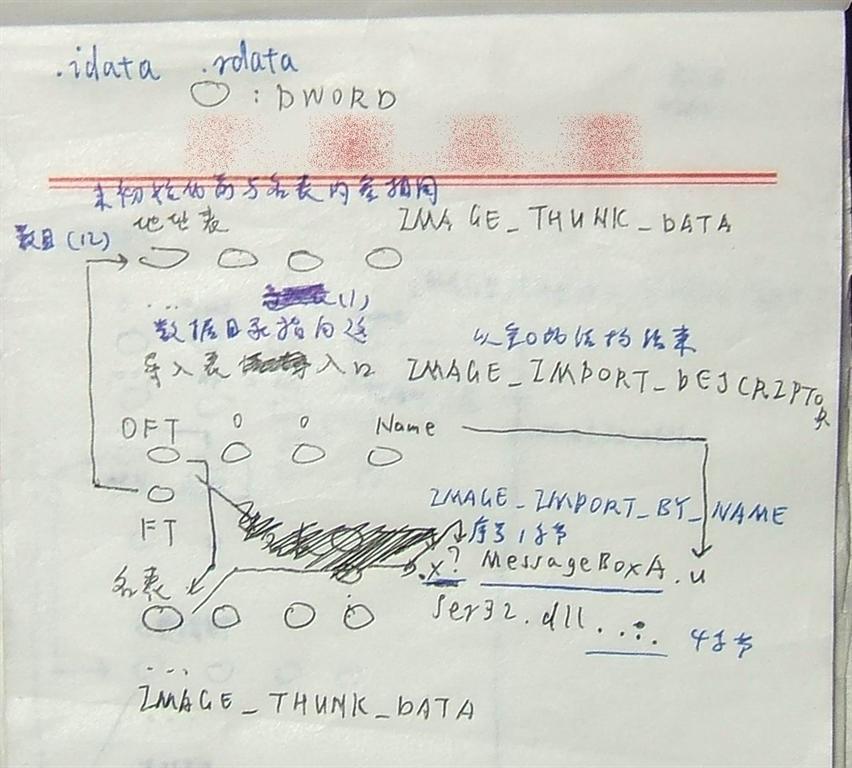 .idata .rdata
○ : DWORD
未初始化前与名表内容相同
地址表 IMAGE_THUNK_DATA
数目(12)
... (1)
数据目录指向这
以全0的结构结束
导入表 入口 IMAGE_IMPORT_DESCRIPTOR
OFT 0 0 Name
FT
IMAGE_IMPORT_BY_NAME
序号1字节
名表
.x? MessageBoxA.u
ser32.dll ....
4字节
...
IMAGE_THUNK_DATA